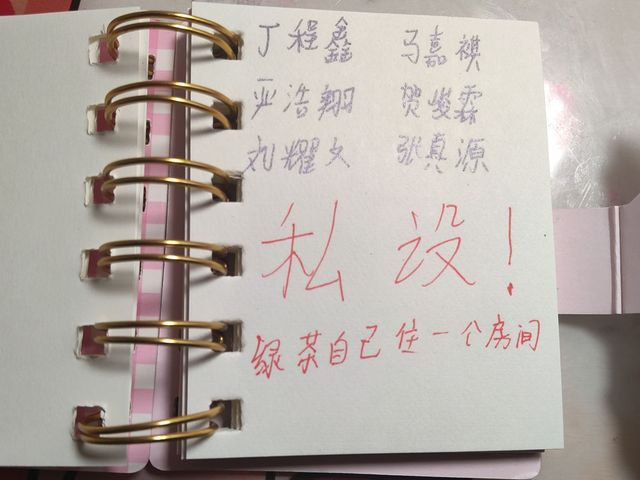 丁程鑫 马嘉祺
严浩翔 贺峻霖
刘耀文 张真源
私设!
绿茶自己住一个房间